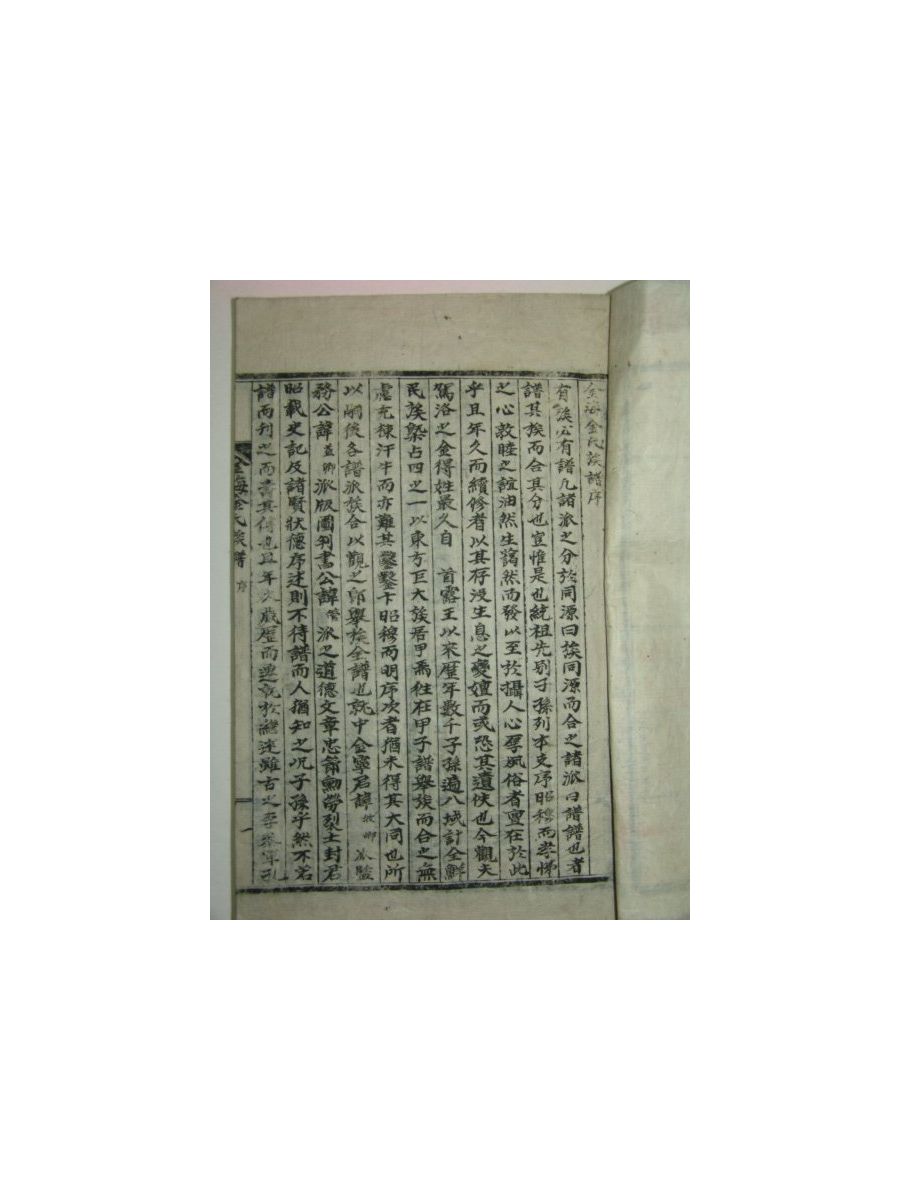 金海金氏族譜序
有族必有譜凡諸派之分於同源曰族同源而合之諸派曰譜譜也者
譜其族而合其分也豈惟是也統祖先別子孫列本支序昭穆而孝悌
之心敦睦之誼油然生藹然而發以至於攝人心厚風俗者亶在於此
乎且年久而續修者以其存沒生息之變嬗而或恐其遺佚也今觀夫
駕洛之金得姓最久自 首露王以來歷年數千子孫遍八域計全鮮
民族槩占四之一以東方巨大族居甲焉往在甲子譜舉族而合之無
慮充棟汗牛而亦難其鑿鑿卞昭穆而明序次者猶未得其大同也所
以嗣後各譜派族合以觀之郎舉族全譜也就中金寧君諱牧卿派監
務公諱益卿派版圖判書公諱管派之道德文章忠節勳勞裂土封君
昭載史記及諸賢狀德序述則不待譜而人猶知之況子孫乎然不若
譜而刊之而壽其傳也且年久歲歷而無就於繼述雖古之
金海金氏族譜 序 一